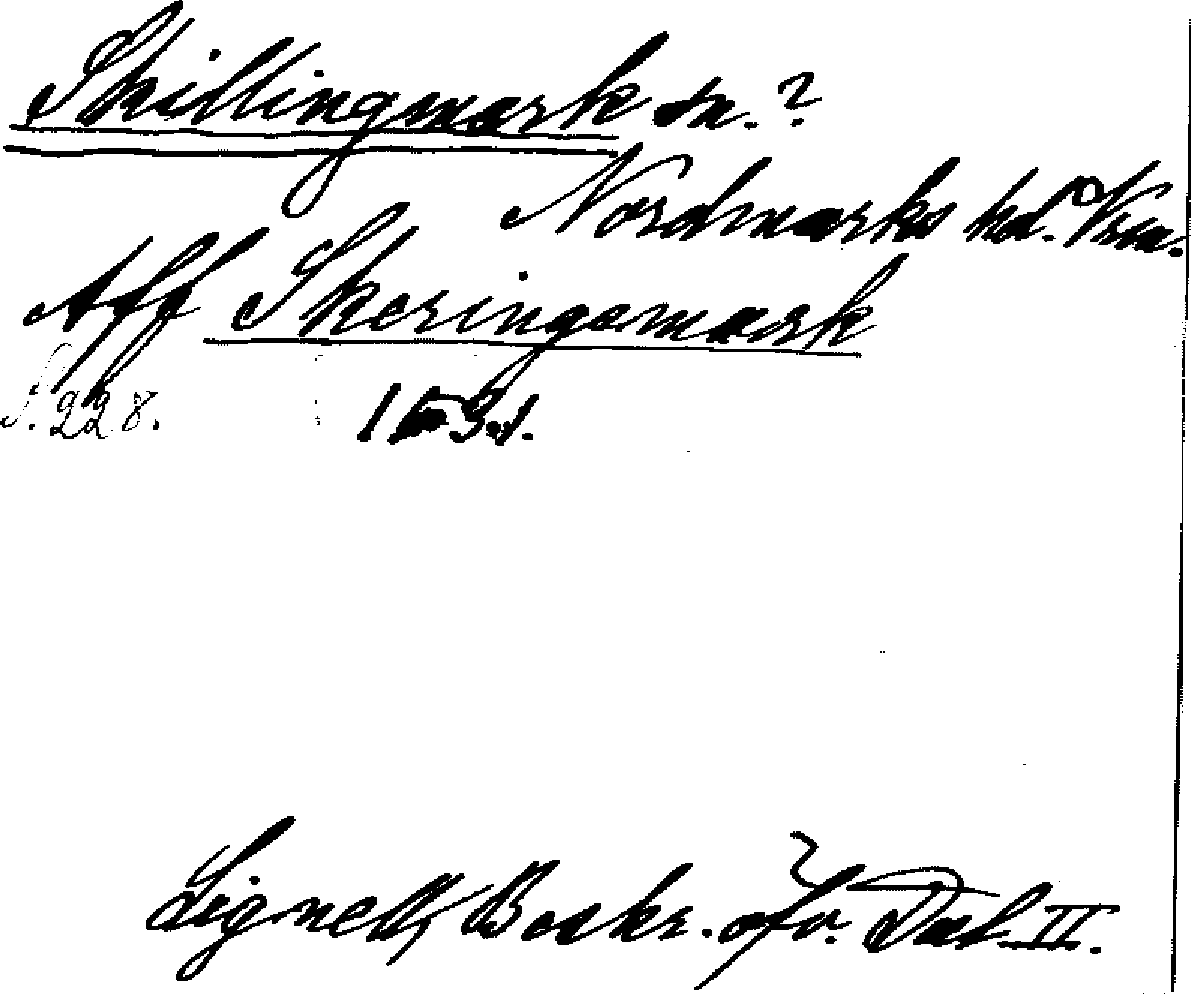 Skillingmark sn.?
Nordmarks hd. Vrm.
Aff Skeringsmark
S. 228. 1531.
Lignell, Beskr. öfv. Dal II.